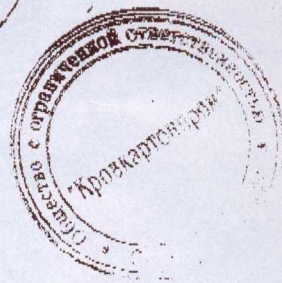 Общество с ограниченной ответственностью
"Кровкартонпром"